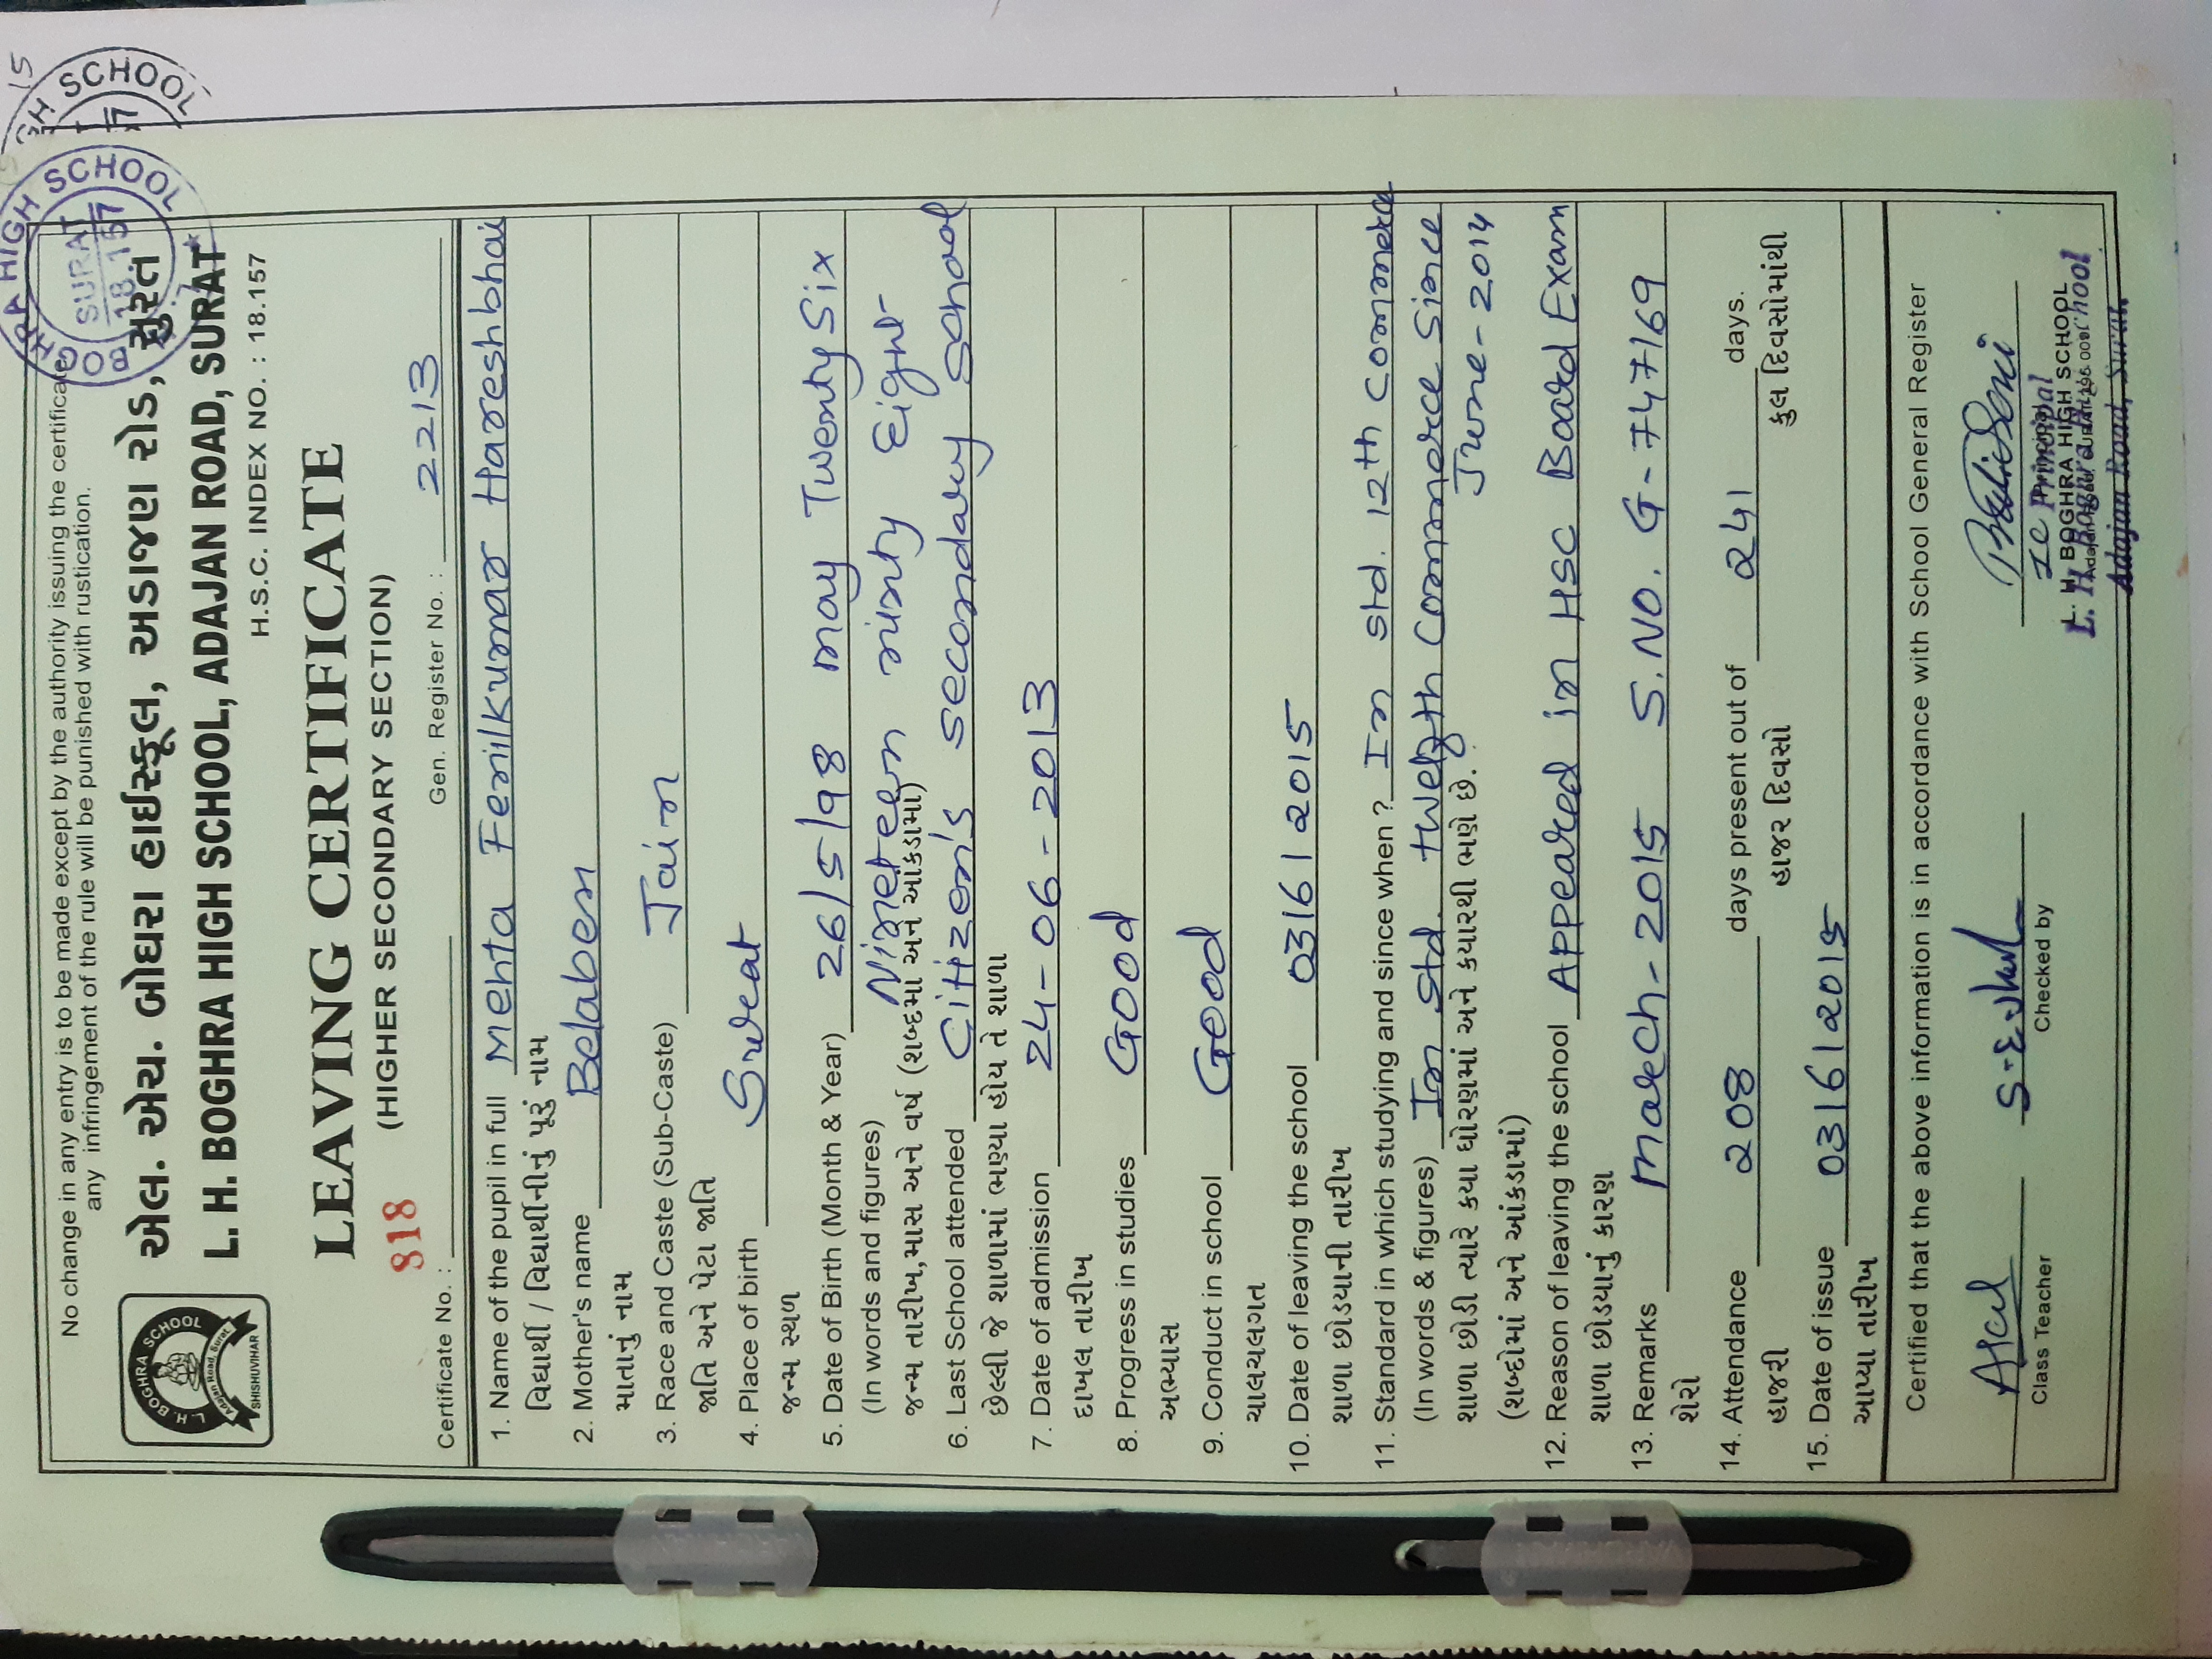 No change in any entry is to be made except by the authority issuing the certificate
any infringement of the rule will be punished with rustication.
એલ. એચ. બોઘરા હાઈસ્કૂલ, અડાજણ રોડ, સુરત
L. H. BOGHRA HIGH SCHOOL, ADAJAN ROAD, SURAT
H.S.C. INDEX NO. : 18.157
L. H. BOGHRA SCHOOL
Adajan Road, Surat.
SHISHUVIHAR
BOGHRA HIGH SCHOOL
SURAT
18.157
GH SCHOOL
LEAVING CERTIFICATE
(HIGHER SECONDARY SECTION)
818
Certificate No. : Gen. Register No. : 2213
1. Name of the pupil in full Mehta Fenilkumar Hareshbhai
વિદ્યાર્થી / વિદ્યાર્થીનીનું પૂરૂં નામ
2. Mother's name Belaben
માતાનું નામ
3. Race and Caste (Sub-Caste) Jain
જાતિ અને પેટા જાતિ
4. Place of birth Surat
જન્મ સ્થળ
5. Date of Birth (Month & Year) 26/5/98 may Twenty Six
(In words and figures) Nineteen ninty Eight
જન્મ તારીખ, માસ અને વર્ષ (શબ્દમાં અને આંકડામાં)
6. Last School attended Citizen's secondary school
છેલ્લી જે શાળામાં ભણ્યા હોય તે શાળા
7. Date of admission 24-06-2013
દાખલ તારીખ
8. Progress in studies Good
અભ્યાસ
9. Conduct in school Good
ચાલચલગત
10. Date of leaving the school 03/6/2015
શાળા છોડયાની તારીખ
11. Standard in which studying and since when ? In std. 12th commerce
(In words & figures) In std. twelfth Commerce Since
શાળા છોડી ત્યારે કયા ધોરણમાં અને કયારથી ભણે છે. June-2014
(શબ્દોમાં અને આંકડામાં)
12. Reason of leaving the school Appeared in HSC Board Exam
શાળા છોડયાનું કારણ
13. Remarks march-2015 S.NO. G-747169
શેરો
14. Attendance 208 days present out of 241 days.
હાજરી હાજર દિવસો કુલ દિવસોમાંથી
15. Date of issue 03/6/2015
આપ્યા તારીખ
Certified that the above information is in accordance with School General Register
Class Teacher Checked by Principal
L. H. BOGHRA HIGH SCHOOL
Adajan Road, Surat.